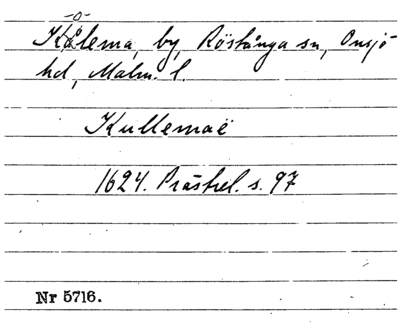 -o-
Kålema, by, Röstånga sn, Onsjö
hd, Malm. l.
Kullemaë
1624. Prästrel. s. 97
Nr 5716.